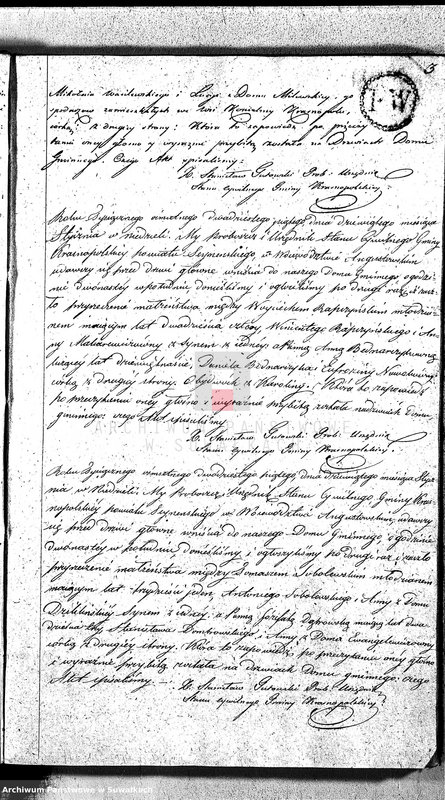 3
Mikołaia Wasilewskiego i Łucyi z Domu Milewskiey, go
spodarzow zamieszkałych we Wsi
córką z drugiey strony; Która to zapowiedź po przeczy
taniu oney głośno y wyraznie przybitą została na Drzwiach Domu
Gminnego Czego Akt spisaliśmy.
X. Stanisław Gutowski Prob. Urzędnik
Stanu Cywilnego Gminy Krasnopolskiey.
Roku Tysiącznego osmsetnego dwudziestego piątego, dnia dziewiątego miesiąca
Stycznia w niedzielę. My Proboszcz i Urzędnik Stanu Cywilnego Gminy
Krasnopolskiey powiatu Seynenskiego w Woiewodztwie Augustowskim
udawszy się przed drzwi głowne wniścia do naszego Domu Gminnego o godzi
nie dwónastey w południe donieśliśmy i ogłosiliśmy po drugi raz iż zaszło
przyrzeczenie małżeństwa między Woyciechem młodzie
nem maiącym lat dwadzieścia cztery, Wincentego i An
ny synem z iedney a Panną Anną Bednarczykowną
liczącey lat dziewiętnaście, Daniela Bednarczyka i
córką z drugiey strony. Która to zapowiedź
po przeczytaniu oney głośno i wyraźnie przybitą została na drzwiach Domu
gminnego; czego Akt spisaliśmy
X. Stanisław Gutowski Prob. Urzędnik
Stanu Cywilnego Gminy Krasnopolskiey.
Roku Tysiącznego osmsetnego dwudziestego piątego, dnia dziewiątego miesiąca Stycz
nia w Niedzielę. My Proboszcz Urzędnik Stanu Cywilnego Gminy Kras
nopolskiey powiatu Seynenskiego w Woiewództwie Augustowskim, udawszy
się przed drzwi głowne wniścia do naszego Domu Gminnego o godzinie
dwónastey w południe, donieśliśmy i ogłosiliśmy po drugi raz iż zaszło
przyrzeczenie małżeństwa między Tomaszem Sobolewskim młodzianem
maiącym lat trzydzieści ieden, Antoniego Sobolewskiego i Anny z Domu
Synem z iedney: a Panną Jozefatą Dąbrowską maiącą lat dwa
dzieścia Stanisława i Anny z Domu
córką z drugiey strony. Która to zapowiedź po przeczytaniu oney głośno
i wyraźnie przybitą została na drzwiach Domu gminnego: czego
Akt spisaliśmy.
X. Stanisław Gutowski Prob. Urzędnik
Stanu Cywilnego Gminy Krasnopolskiey
Archiwum Państwowe w Suwałkach